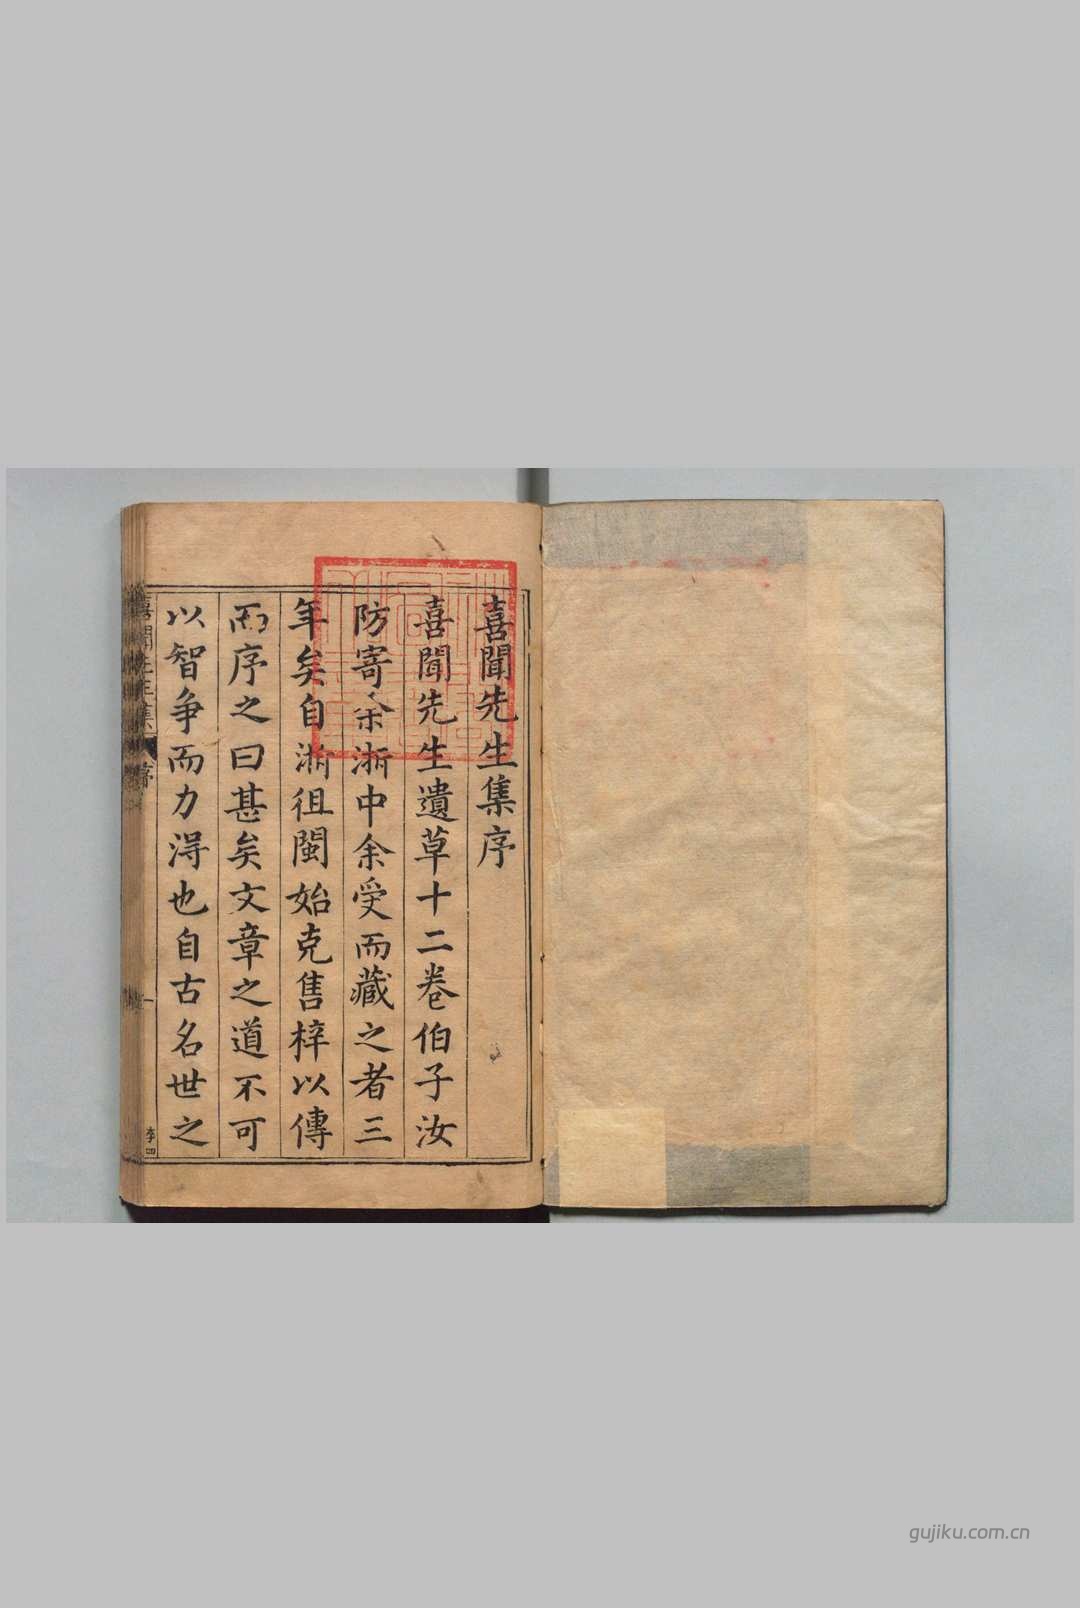 喜聞先生集序
喜聞先生遺草十二卷伯子汝
防寄余浙中余受而藏之者三
年矣自浙徂閩始克售梓以傳
而序之曰甚矣文章之道不可
以智争而力淂也自古名世之
喜聞先生集
序
一
李四
gujiku.com.cn